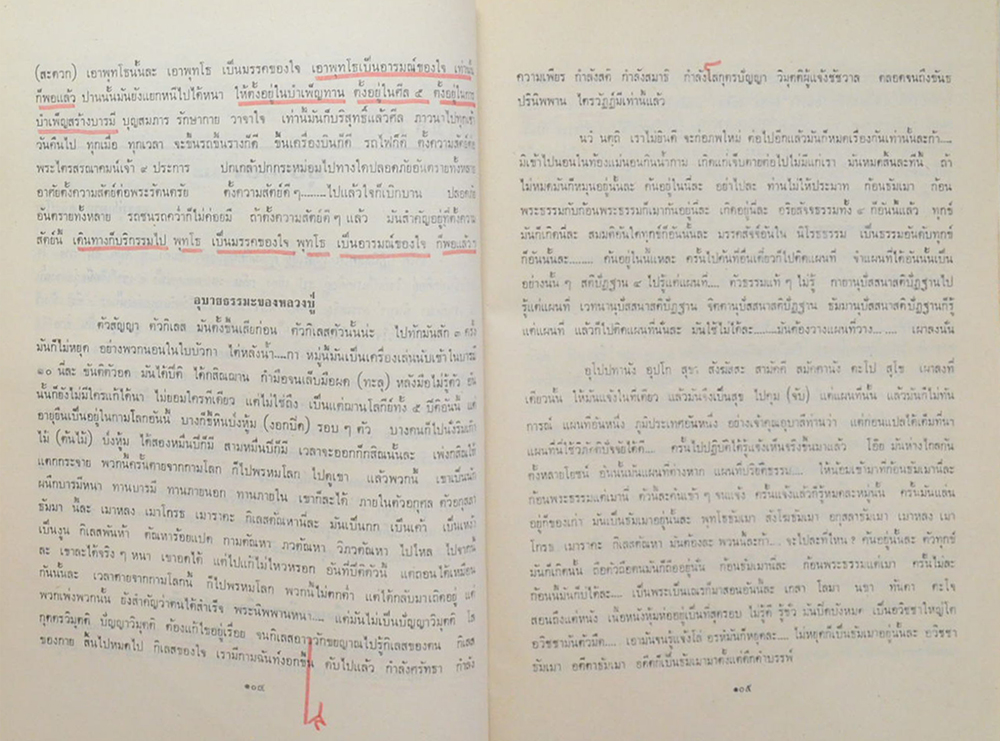 (สะดวก) เอาพุทโธนั้นละ เอาพุทโธ เป็นมรรคของใจ เอาพุทโธเป็นอารมณ์ของใจ เท่านั้น
ก็พอแล้ว ปานนั้นมันยังแยกหนีไปได้หนา ให้ตั้งอยู่ในบำเพ็ญทาน ตั้งอยู่ในศีล ๕ ตั้งอยู่ในการ
บำเพ็ญสร้างบารมี บุญสมภาร รักษากาย วาจาใจ เท่านี้มันก็บริสุทธิ์แล้วศีล ภาวนาไปทุกเช้า
วันคืนไป ทุกเมื่อ ทุกเวลา จะขึ้นรถขึ้นรางก็ดี ขึ้นเครื่องบินก็ดี รถไฟก็ดี ตั้งความสัตย์ต่อ
พระไตรสรณาคมน์เจ้า ๙ ประการ ปกเกล้าปกกระหม่อมไปทางใดปลอดภัยอันตรายทั้งหลาย
อาศัยตั้งความสัตย์ต่อพระรัตนตรัย ตั้งความสัตย์ดี ๆ........ไปแล้วใจก็เบิกบาน ปลอดภัย
อันตรายทั้งหลาย รถชนรถคว่ำก็ไม่ค่อยมี ถ้าตั้งความสัตย์ดี ๆ แล้ว มันสำคัญอยู่ที่ตั้งความ
สัตย์นี้ เดินทางก็บริกรรมไป พุทโธ เป็นมรรคของใจ พุทโธ เป็นอารมณ์ของใจ ก็พอแล้ว
อุบายธรรมะของหลวงปู่
ตัวสัญญา ตัวกิเลส มันตั้งขึ้นเลียก่อน ตัวกิเลสตัวนั้นน่ะ ไปทักมันสัก ๓ ครั้ง
มันก็ไม่หยุด อย่างพวกนอนในใบบัวกา ใต่หลังน้ำ....กา หมู่นี้มันเป็นเครื่องเล่นนับเข้าในบารมี
๑๐ นี่ละ ขันติตัวอด มันได้ปีติ ได้กสิณฌาน กำมือจนเล็บมือผุด (ทะลุ) หลังมือไม่รู้ตัว
นั้นก็ยังไม่มีใครแก้ได้นา ไม่ยอมใครทีเดียว แต่ไม่ใช่ถึง เป็นแต่ฌานโลกีย์ทั้ง ๕ ปีติอันนี้
อายุยืนเป็นอยู่ในกามโลกอันนี้ บางก็ขี้หินบ่งหุ้ม (งอกปิด) รอบ ๆ ตัว บางคนก็ไปนั่งริมเก๊า
ไม้ (ต้นไม้) บ่งหุ้ม ได้สองหมื่นปีก็มี สามหมื่นปีก็มี เวลาจะออกก็กสิณนั้นละ เพ่งกสิณให้
แตกกระจาย พวกนี้ครั้นตายจากกามโลก ก็ไปพรหมโลก ไปดูเขา แล้วพวกนี้ เขาเป็นนัก
ผนึกบารมีหนา ทานบารมี ทานภายนอก ทานภายใน เขาก็ละได้ ภายในตัวอกุศล ตัวอกุสลา
ธัมมา นี้ละ เมาหลง เมาโกรธ เมาราคะ กิเลสตัณหานี่ละ มันเป็นกก เป็นเค้า เป็นเหง้า
เป็นงูน กิเลสพันห้า ตัณหาร้อยแปด กามตัณหา ภวตัณหา วิภวตัณหา ไปไหล ไปจาก
ละ เขาละได้จริง ๆ หนา เขาอดได้ แต่ไปแก้ไม่ไหวหรอก อันที่ปีติตัวนี้ แต่ถอนได้เหมือน
กันนั้นละ เวลาตายจากกามโลกนี้ ก็ไปพรหมโลก พวกนี้ไม่ตกต่ำ แต่ได้กลับมาเกิดอยู่
พวกเพ่งพวกนั้น ยังสำคัญว่าตนได้สำเร็จ พระนิพพานหนา.... แต่มันไม่เป็นปัญญาวิมุตติ โล
กุตตรวิมุตติ ปัญญาวิมุตติ ต้องแก้ไขอยู่เรื่อย จนกิเลสอาสวักขยญาณไปรู้กิเลสของตน กิเลส
ของกาย สิ้นไปหมดไป กิเลสของใจ เรามีกามฉันท์งอกขึ้น ดับไปแล้ว กำลังศรัทธา กำลัง
๑๐๔
ส
ความเพียร กำลังสติ กำลังสมาธิ กำลังโลกุตรปัญญา วิมุตติผู้แจ้งชัชวาล ตลอดจนถึงขันธ
ปรินิพพาน ไตรวัฏฏ์มีเท่านี้แล้ว
นวํ นตฺถิ เราไม่ยินดี จะก่อภพใหม่ ต่อไปอีกแล้วมันก็หมดเรื่องกันเท่านั้นละก๋า....
มิเข้าไปนอนในท้องแม่นอนกินน้ำกาม เกิดแก่เจ็บตายต่อไปไม่มีแก่เรา มันหมดสิ้นละทีนี้ ถ้า
ไม่หมดมันก็หมุนอยู่นั้นละ ค้นอยู่ในนี่ละ อย่าไปละ ท่านไม่ให้ประมาท ก้อนธัมเมา ก้อน
พระธรรมกับก้อนพระธรรมก็เมากันอยู่นี่ละ เกิดอยู่นี่ละ อริยสัจธรรมทั้ง ๔ ก็อันนี้แล้ว ทุกข์
มันก็เกิดนี่ละ สมมติอันใดทุกข์ก็อันนั้นละ มรรคสัจจ์อันใน นิโรธธรรม เป็นธรรมอันดับทุกข์
ก้อนนั้นละ........ ค้นอยู่ในนี้แหละ ครั้นไปค้นที่อื่นเดี๋ยวก็ไปติดแผนที่ จำแผนที่ได้อันนั้นเป็น
อย่างนั้น ๆ สติปัฏฐาน ๔ ไปรู้แต่แผนที่.... ตัวธรรมแท้ ๆ ไม่รู้ กายานุปัสสนาสติปัฏฐานไป
รู้แต่แผนที่ เวทนานุปัสสนาสติปัฏฐาน จิตตานุปัสสนาสติปัฏฐาน ธัมมานุปัสสนาสติปัฏฐานก็รู้
แต่แผนที่ แล้วก็ไปติดแผนที่นั่นละ มันใช้ไม่ได้ละ........มันต้องวางแผนที่วาง........ เผาลงนั้น
อุไปปทานัง อุปโก สุขา สังฆัสสะ สามัคคี สมัคคานัง ตะโป สุโข เผาลงที่
เดียวนั้น ให้มันแจ้งในที่เดียว แล้วมันจึงเป็นสุข ไปคุม (จับ) แต่แผนที่นั้น แล้วมันก็ไม่ทัน
การณ์ แผนที่อันหนึ่ง ภูมิประเทศอันหนึ่ง อย่างเจ้าคุณอุบาลีท่านว่า แต่ก่อนแปลได้เต็มที่นา
แผนที่นี่ใช้วิภัติปัจจัยได้ดี.... ครั้นไปปฏิบัติได้รู้แจ้งเห็นจริงขึ้นมาแล้ว โอ๊ย มันห่างไกลกัน
ตั้งหลายโยชน์ อันนั้นมันแผนที่ต่างหาก แผนที่ปริยัติธรรม.... ให้น้อมเข้ามาที่ก้อนธัมเมานี่ละ
ก้อนพระธรรมแต่เมานี่ ตัวนี้ละค้นเข้า ๆ จนแจ้ง ครั้นแจ้งแล้วก็รู้หมดละหมู่นั้น ครั้นมันแล่น
อยู่ก็ของเก่า มันเป็นธัมเมาอยู่นั้นละ พุทโธธัมเมา สังโฆธัมเมา อกุสลาธัมเมา เมาหลง เมา
โกรธ เมาราคะ กิเลสตัณหา มันต้องละ พวกนี้ละก๋า.... จะไปละที่ไหน ? ค้นอยู่นั้นละ ตัวทุกข์
มันก็เกิดนั้น ถือตัวถือตนมันก็ถืออยู่นั้น ก้อนธัมเมานี่ละ ก้อนพระธรรมแต่เมา ครั้นไม่ละ
ก้อนนี้มันก็บ่ได้ละ.... เป็นพระเป็นเณรก็มาสอนอันนี้ละ เกสา โลมา นขา ทันตา ตะโจ
สอนถึงแต่หนัง เนื้อหนังหุ้มห่ออยู่เป็นที่สุดรอบ ไม่รู้ดี รู้ชั่ว มันปิดบังหมด เป็นอวิชชาใหญ่โต
อวิชชามันตัวมืด.... เอามันจนรู้แจ้งโล่ อรหํมันก็หอดละ.... ไม่หยุดก็เป็นธัมเมาอยู่นั้นละ อวิชชา
ธัมเมา อดีตาธัมเมา อดีตก็เป็นธัมเมามาตั้งแต่ดึกดำบรรพ์
๑๐๕